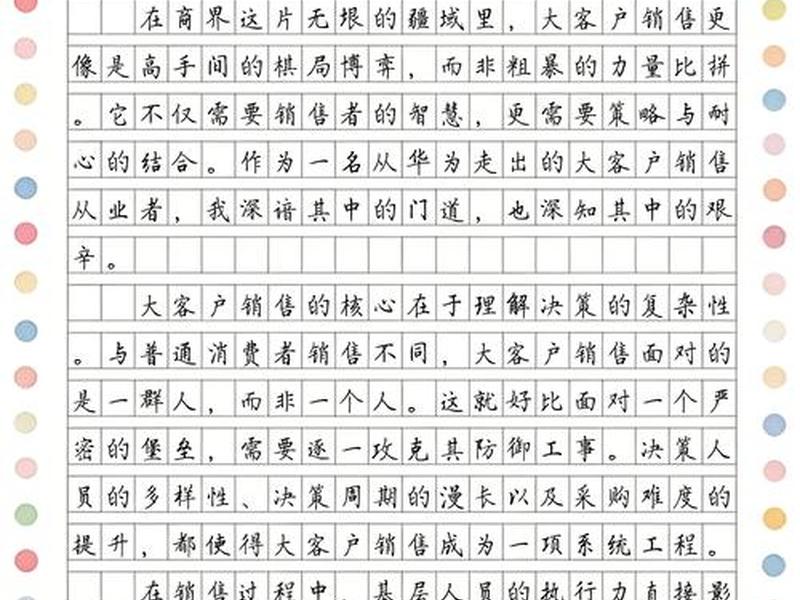 在商界这片无垠的疆域里，大客户销售更
像是高手间的棋局博弈，而非粗暴的力量比拼
。它不仅需要销售者的智慧，更需要策略与耐
心的结合。作为一名从华为走出的大客户销售
从业者，我深谙其中的门道，也深知其中的艰
辛。
大客户销售的核心在于理解决策的复杂性
。与普通消费者销售不同，大客户销售面对的
是一群人，而非一个人。这就好比面对一个严
密的堡垒，需要逐一攻克其防御工事。决策人
员的多样性、决策周期的漫长以及采购难度的
提升，都使得大客户销售成为一项系统工程。
在销售过程中，基层人员的执行力直接影